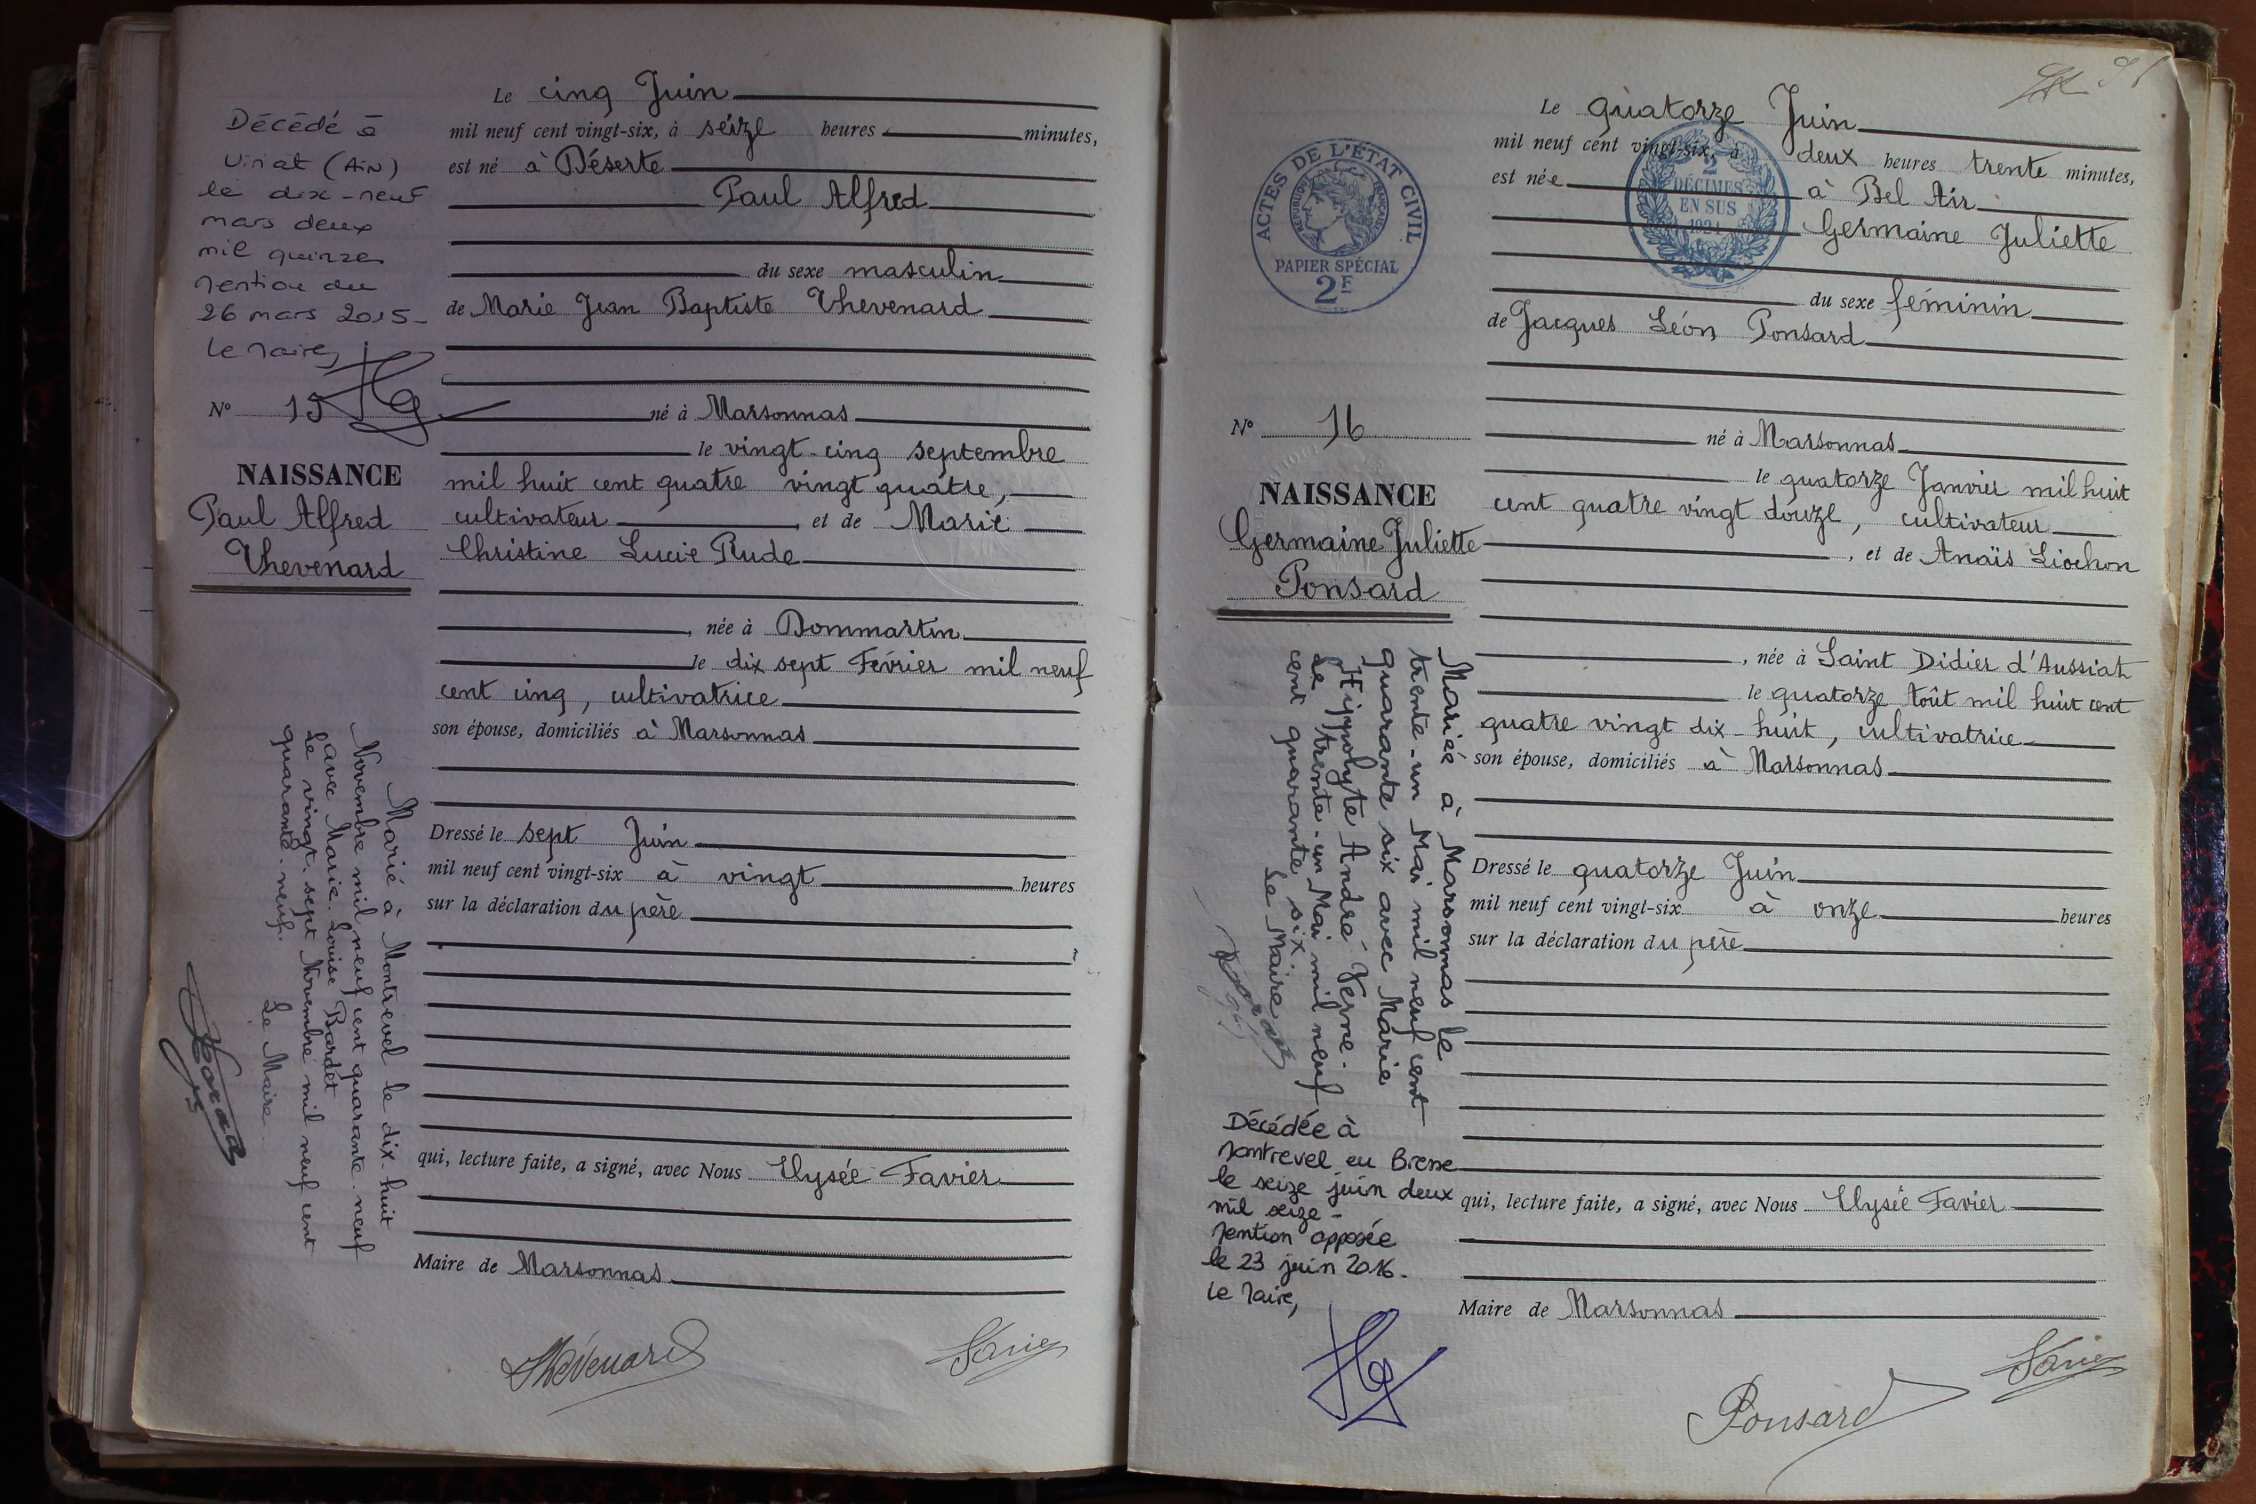 Décédé à
Viriat (Ain)
le dix-neuf
mars deux
mil quinze
mention du
26 mars 2015-
le Maire,
N° 15
NAISSANCE
Paul Alfred
Thevenard
Marié à Montrevel le dix-huit
Novembre mil neuf cent quarante-neuf
avec Marie-Louise Bardet
Le vingt-sept Novembre mil neuf cent
quarante-neuf.
Le Maire
Le cinq Juin
mil neuf cent vingt-six, à seize heures minutes,
est né à Déserte
Paul Alfred
du sexe masculin
de Marie Jean Baptiste Thevenard
né à Marsonnas
le vingt-cinq septembre
mil huit cent quatre vingt quatre,
cultivateur, et de Marie
Christine Lucie Rude
, née à Dommartin
le dix sept Février mil neuf
cent cinq, cultivatrice
son épouse, domiciliés à Marsonnas
Dressé le sept Juin
mil neuf cent vingt-six à vingt heures
sur la déclaration du père
qui, lecture faite, a signé, avec Nous Ulysée Favier
Maire de Marsonnas
Thévenard
Favier
ACTES DE L'ÉTAT CIVIL
RÉPUBLIQUE FRANÇAISE
PAPIER SPÉCIAL
2F
2
DÉCIMES
EN SUS
1924
N° 16
NAISSANCE
Germaine Juliette
Ponsard
Mariée à Marsonnas le
trente-un Mai mil neuf cent
quarante six avec Marie
Hippolyte André Verne.
Le trente-un Mai mil neuf
cent quarante six.
Le Maire
Décédée à
Montrevel en Bresse
le seize juin deux
mil seize-
Mention apposée
le 23 juin 2016.
Le Maire,
Le quatorze Juin
mil neuf cent vingt-six, à deux heures trente minutes,
est née à Bel Air
Germaine Juliette
du sexe féminin
de Jacques Léon Ponsard
né à Marsonnas
le quatorze Janvier mil huit
cent quatre vingt douze, cultivateur
, et de Anaïs Liochon
, née à Saint Didier d'Aussiat
le quatorze Août mil huit cent
quatre vingt dix-huit, cultivatrice
son épouse, domiciliés à Marsonnas
Dressé le quatorze Juin
mil neuf cent vingt-six à onze heures
sur la déclaration du père
qui, lecture faite, a signé, avec Nous Ulysée Favier
Maire de Marsonnas
Ponsard
Favier